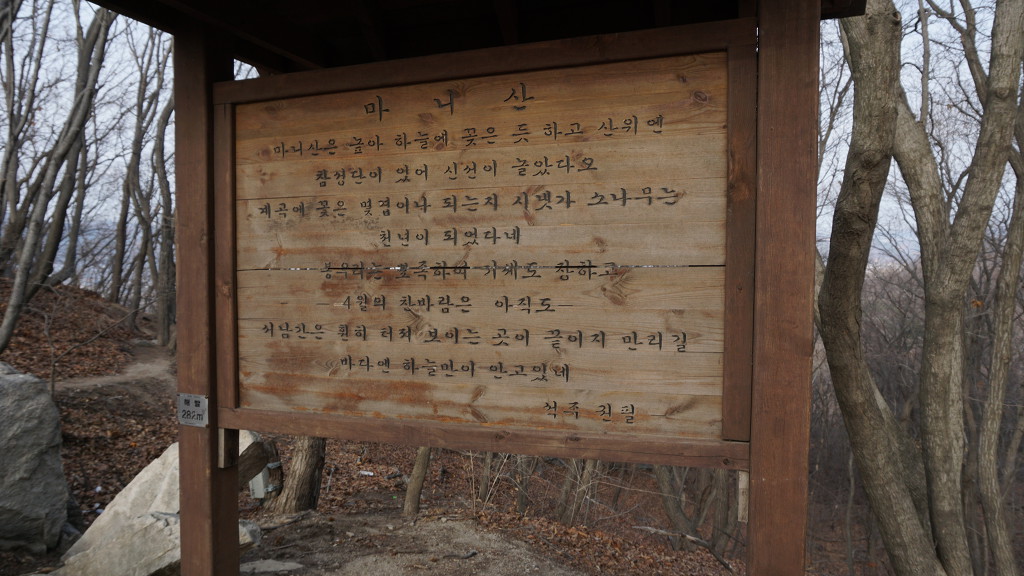 마니산
마니산은 높아 하늘에 꽂은 듯 하고 산위엔
참성단이 있어 신선이 놀았다오
계곡에 꽃은 몇겁이나 되는지 시냇가 소나무는
천년이 되었다네
하고
4월의 찬바람은 아직도
서남간은 훤히 터져 보이는 곳이 끝이지 만리길
바다엔 하늘만이 안고있네
친필
해발
282m